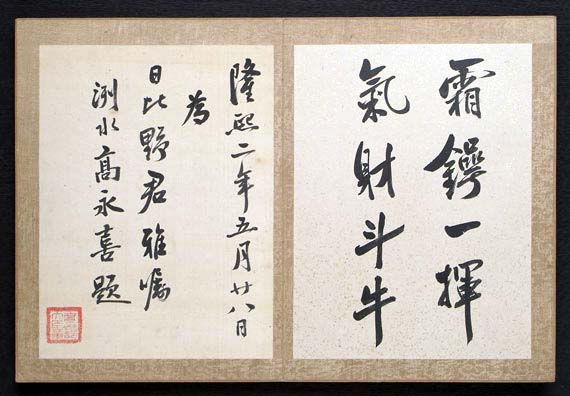 霜鍔一揮
氣射斗牛
隆熙二年五月廿八日
為
日比野君雅囑
洌水高永喜題